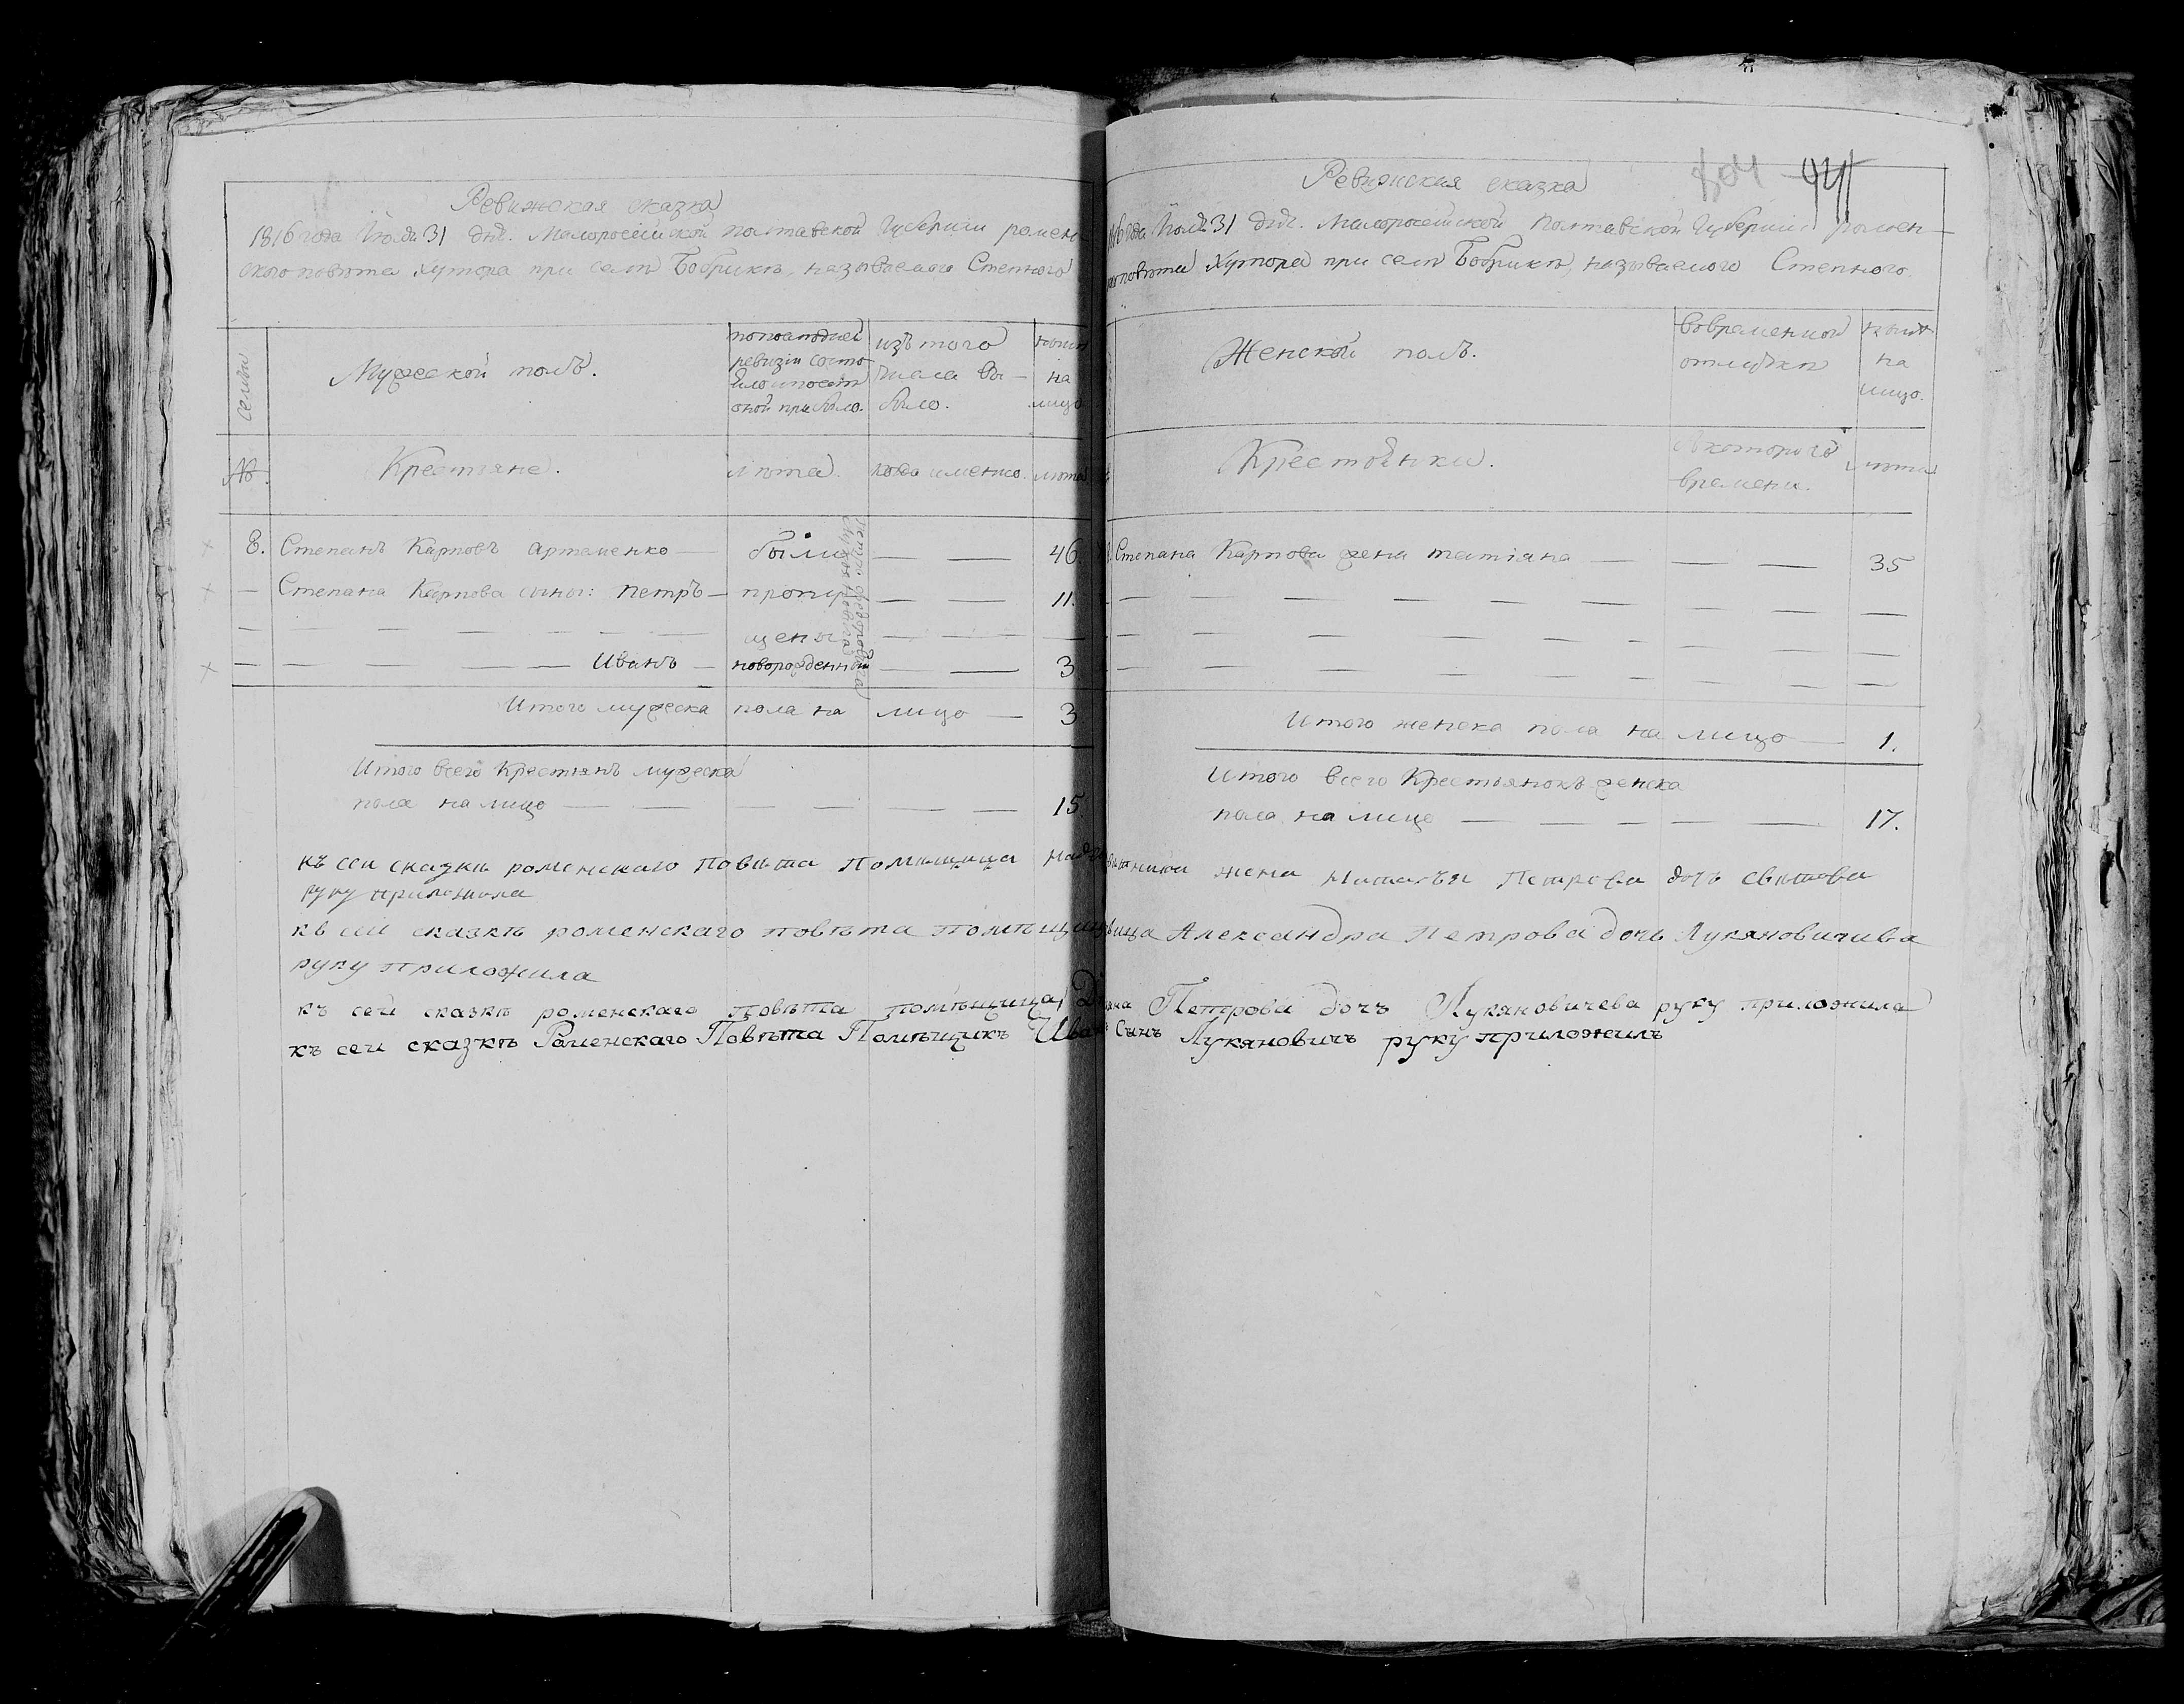 Ревижская сказка
1816 года Июля 31 дня. Малоросийской Полтавской Губернии ромен-
ского повѣта Хутора при селѣ Бобрикѣ, называемого Степного
семьи
Мужеской полъ.
попоследней
ревизіи состо
яло и послѣ
оной прибыло.
изъ того
числа вы-
было.
нынѣ
на
лицо
№
Крестьяне.
лѣта.
когда именно.
лѣта
8. Степанъ Карповъ Артеменко — были — — 46.
Степана Карпова сыны: Петръ — пропу — — 11.
щены
Иванъ — новорожденный — — 3
Итого мужеска пола на лицо — 3
Итого всего Крестьянъ мужеска
пола на лицо — 15
Ревижская сказка
804 941
1816 года Июля 31 дня. Малоросийской Полтавской Губернии ромен-
ского повѣта Хутора при селѣ Бобрикѣ, называемого Степного.
Женской полъ.
Вовременной
отлучки
нынѣ
на
лицо.
Крестьянки.
Скоторого
времени.
лѣта
8. Степана Карпова жена татіана — — — 35
Итого женска пола на лицо — 1.
Итого всего Крестьянокъ женска
пола на лицо — 17.
къ сеи сказки роменскаго повѣта Помищица жена Наталъя Петрова дочъ
руку приложила
къ сей сказкѣ роменскаго повѣта помѣщица Александра Петрова дочь Лукяновичива
руку приложила
къ сей сказкѣ роменскаго повѣта помѣщица Петрова дочъ Лукяновичева руку приложила
къ сеи сказкѣ Роменскаго Повѣта Помѣщикъ Иванъ Сынъ Лукяновичъ руку приложилъ